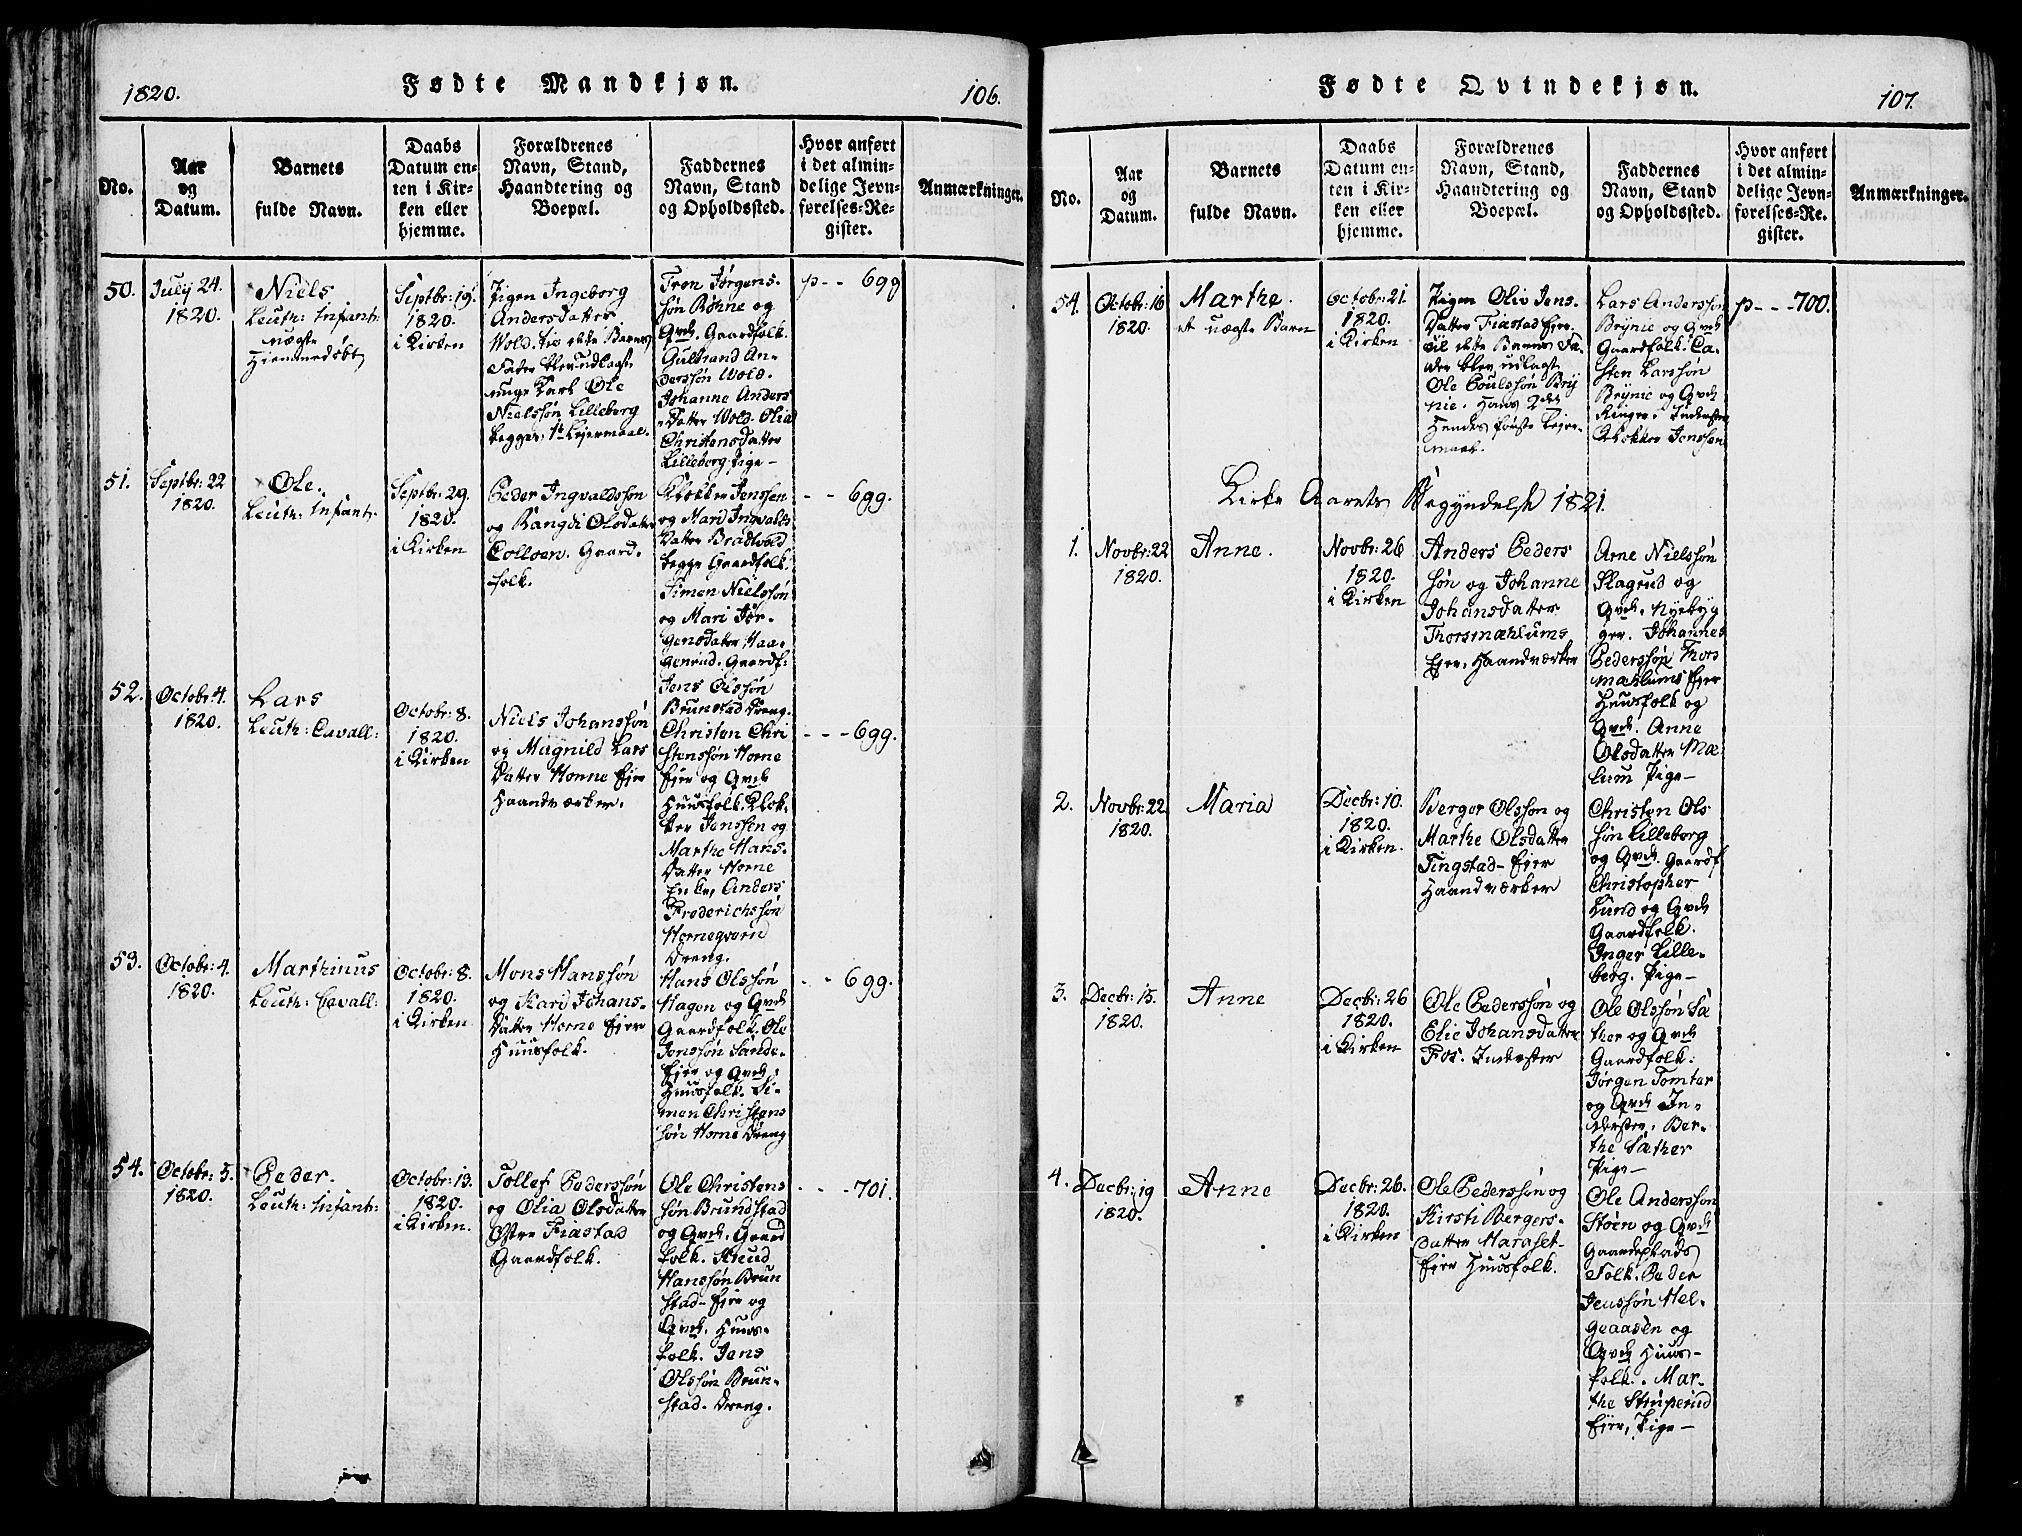 1820.
Fødte Mandkjøn.
106.
No.
Aar
og
Datum.
Barnets
fulde Navn.
Daabs
Datum en-
ten i Kir-
ken eller
hjemme.
Forældrenes
Navn, Stand,
Haandtering og
Boepæl.
Faddernes
Navn, Stand
og Opholdssted.
Hvor anført
i det almin-
delige Jevn-
førelses-Re-
gister.
Anmærkninger.
50.
July 24.
1820.
Niels
Leuth: Infant:
uægte
Hiemmedøbt
Septbr: 19.
1820.
i Kirken
Pigen Ingeborg
Andersdatter
Wold. til dette Barns
Fader blev udlagt
unge Karl Ole
Nielssøn Lilleberg
begges 1te Leiermaal.
Tron Jørgens-
søn Bøhne og
Qvde. Gaardfolk.
Gulbrand An-
derssøn Wold.
Johanne Anders
Datter Wold. Olia
Christensdatter
Lilleborg. Pige –
p - - 699
51.
Septbr: 22
1820.
Ole.
Leuth: Infant:
Septbr: 29.
1820.
i Kirken
Peder Ingvaldssøn
og Rangdi Olsdatter
Colloen. Gaard-
folk.
Klokker Jenssen
og Mari Ingvalds
Datter Bradvold
begge Gaardfolk.
Simen Nielssøn
og Mari Jør-
gensdatter Haa-
genrud. Gaardf:
Jens Olssøn
Brunstad Dreng.
- - 699.
52.
Octobr: 4.
1820.
Lars
Leuth: Cavall:
Octobr: 8.
1820.
i Kirken
Niels Johanssøn
og Magnild Lars
Datter Horne Eier
Haandværker.
Christen Chri
stenssøn Horne
Eier og Qvde
Huusfolk. Klok-
ker Jenssen og
Marthe Hans-
Datter Horne
Enke, Anders
Frederichssøn
Horneqvern
Dreng.
- - - 699.
53.
Octobr: 4.
1820.
Marthinus
Leuth: Cavall:
Octobr: 8.
1820.
i Kirken
Mons Hanssøn
og Kari Johans-
Datter Horne Eier
Huusfolk.
Hans Olssøn
Hagen og Qvde
Gaardfolk. Ole
Jonssøn Sande-
Eier og Qvde,
Huusfolk. Si-
men Christens
søn Horne Dreng
- - 699.
54.
Octobr: 5.
1820.
Peder.
Leuth: Infant:
Octobr: 13.
1820.
i Kirken.
Tollef Pederssøn
og Olia Olsdatter
Østre Fiastad
Gaardfolk.
Ole Christens
søn Brundstad
og Qvde. Gaard
folk. Knud
Hanssøn Brun
stad-Eier og
Qvde. Huus-
folk. Jens
Olssøn Brun-
stad. Dreng.
- - - 701.
Fødte Qvindekjøn.
107.
No.
Aar
og
Datum.
Barnets
fulde Navn.
Daabs
Datum en-
ten i Kir-
ken eller
hjemme.
Forældrenes
Navn, Stand,
Haandtering og
Boepæl.
Faddernes
Navn, Stand
og Opholdssted.
Hvor anført
i det almin-
delige Jevn-
førelses-Re-
gister.
Anmærkninger.
54.
Octobr: 16
1820.
Marthe.
et uægte Barn
Octobr: 21.
1820.
i Kirken
Pigen Oliv Jens-
Datter Fiastad Eier.
til dette Barns Fa-
der blev udlagt
Ole Poulssøn Bry
nie. Hans 2det
Hendes første Leier-
maal.
Lars Anderssøn
Brynie og Qvde
Gaardfolk. Ca-
sten Larssøn
Brynie og Qvde
Ringer. Inderster
Klokker Jenssen
p - - - 700.
Kirke Aarets Begyndelse 1821.
1.
Novbr: 22
1820.
Anne.
Novbr: 26
1820.
i Kirken
Anders Peders
søn og Johanne
Johansdatter
Thorsmæhlums
Eier, Haandværker
Arne Nielssøn
Slagrud og
Qvde. Nyebyg
ger. Johannes
Pederssøn Thors
mæhlums Eier
Huusfolk og
Qvde. Anne
Olsdatter Mæ
lum Pige –
2.
Novbr: 22.
1820.
Maria
Decbr: 10.
1820.
i Kirken.
Berger Olssøn og
Marthe Olsdatter
Tingstad-Eier
Haandværker
Christen Ols
søn Lilleborg
og Qvde. Gaardf
Christopher
Lund og Qvde
Gaardfolk.
Inger Lille-
berg. Pige –
3.
Decbr: 15.
1820.
Anne
Decbr: 26
1820.
i Kirken
Ole Pederssøn og
Elie Johansdatter
Fos. Inderster
Ole Olssøn Sa
ther og Qvde
Gaardfolk:
Jørgen Tomter
og Qvde In-
derster, Ber-
the Sather
Pige –
4.
Decbr: 19
1820.
Anne
Decbr: 26.
1820.
i Kirken
Ole Pederssøn og
Kirsti Bergers-
datter Haraset-
Eier Huusfolk.
Ole Anderssøn
Støen og Qvde
Gaardeplads
Folk. Peder
Jenssøn Hel-
geaasen og
Qvde Huus-
folk. Mar-
the Struperud
Eier, Pige –